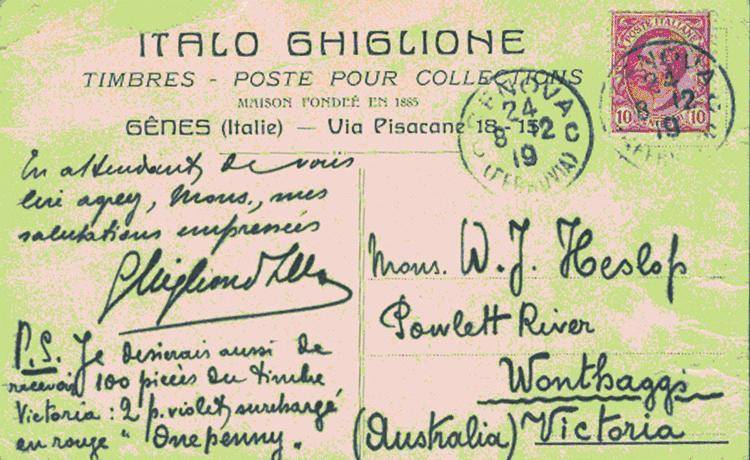 ITALO GHIGLIONE
TIMBRES - POSTE POUR COLLECTIONS
MAISON FONDÉE EN 1885
GÊNES (Italie) — Via Pisacane 18-15
POSTE ITALIANE
10 10
GENOVA C C
24
8 12
19
(FERROVIA)
24
8 12
19
En attendant de vous
lire agréez, Mons., mes
salutations empressées
Mons. W. J. Heslop
Powlett River
Wonthaggi
(Australia) Victoria
P.S. Je desierais aussi de
recevoir 100 pièces du timbre
Victoria: 2 p. violet, surchargé
en rouge "One penny.